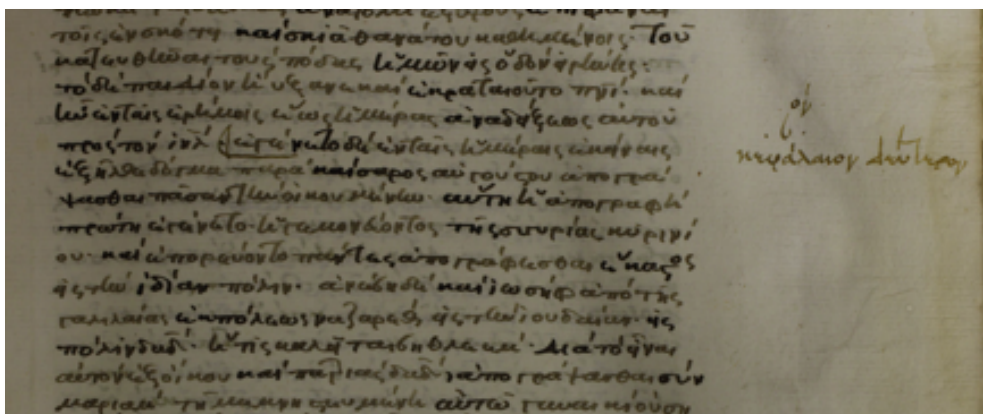 ἀνατολὴ ἐξ ὕψους ἐπιφᾶναι
τοῖς ἐν σκότει καὶ σκιᾷ θανάτου καθημένοις· τοῦ
κατευθῦναι τοὺς πόδας ἡμῶν εἰς ὁδὸν εἰρήνης·
τὸ δὲ παιδίον ηὔξανε καὶ ἐκραταιοῦτο πνι· καὶ
ἦν ἐν ταῖς ἐρήμοις ἕως ἡμέρας ἀναδείξεως αὐτοῦ
πρὸς τὸν ιηλ· ἐγένετο δὲ ἐν ταῖς ἡμέραις ἐκείναις
ἐξῆλθε δόγμα παρὰ καίσαρος αὐγούστου ἀπογρά
ψασθαι πᾶσαν τὴν οἰκουμένην· αὕτη ἡ ἀπογραφὴ
πρώτη ἐγένετο· ἡγεμονεύοντος τῆς συρίας κυρινί
ου· καὶ ἐπορεύοντο πάντες ἀπογράφεσθαι ἕκαστος
εἰς τὴν ἰδίαν πόλιν· ἀνέβη δὲ καὶ ἰωσὴφ ἀπὸ τῆς
γαλιλαίας ἐκ πόλεως ναζαρὲθ εἰς τὴν ἰουδαίαν· εἰς
πόλιν δαδ· ἥτις καλεῖται βηθλεέμ· διὰ τὸ εἶναι
αὐτὸν ἐξ οἴκου καὶ πατριᾶς δαδ· ἀπογράψασθαι σὺν
μαριὰμ τῇ μεμνηστευμένῃ αὐτῷ γυναικὶ οὔσῃ
ον
κεφάλαιον δεύτερον